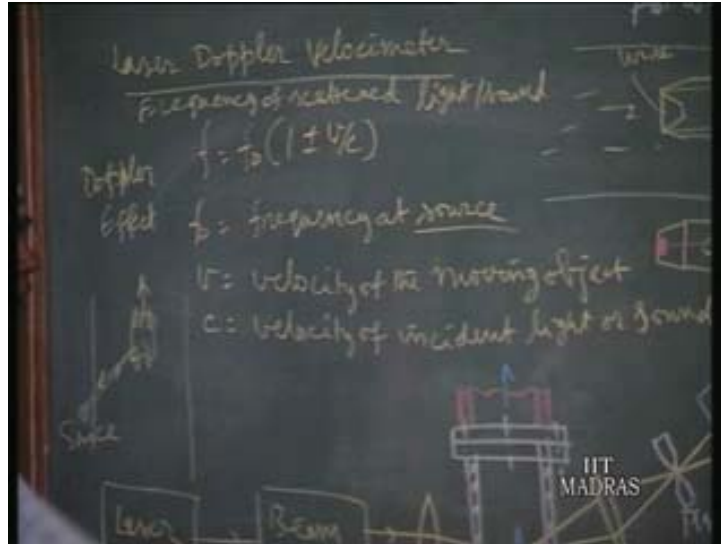 Laser Doppler Velocimeter
Frequency of scattered light/sound
f = f₀(1 ± v/c)
Doppler
Effect
f₀ = frequency at source
v = velocity of the moving object
c = velocity of incident light or sound
Source
wire
Laser
Beam
IIT
MADRAS